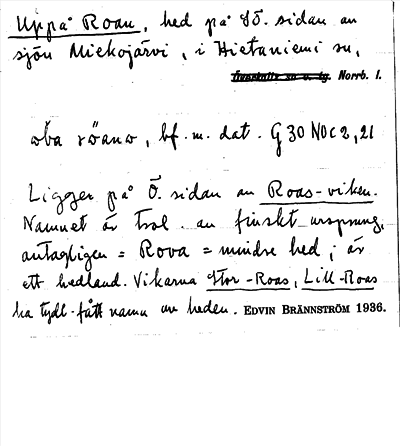 Uppå Roan, hed på SÖ. sidan av
sjön Miekojärvi, i Hietaniemi sn,
Norrb. l.
ɷba röanɷ, bf. m. dat. G 30 NOC 2, 21
Ligger på Ö. sidan av Roas-viken.
Namnet är trol. av finskt ursprung,
antagligen = Rova = mindre hed; är
ett hedland. Vikarna Stor-Roas, Lill-Roas
ha tydl. fått namn av heden. EDVIN BRÄNNSTRÖM 1936.